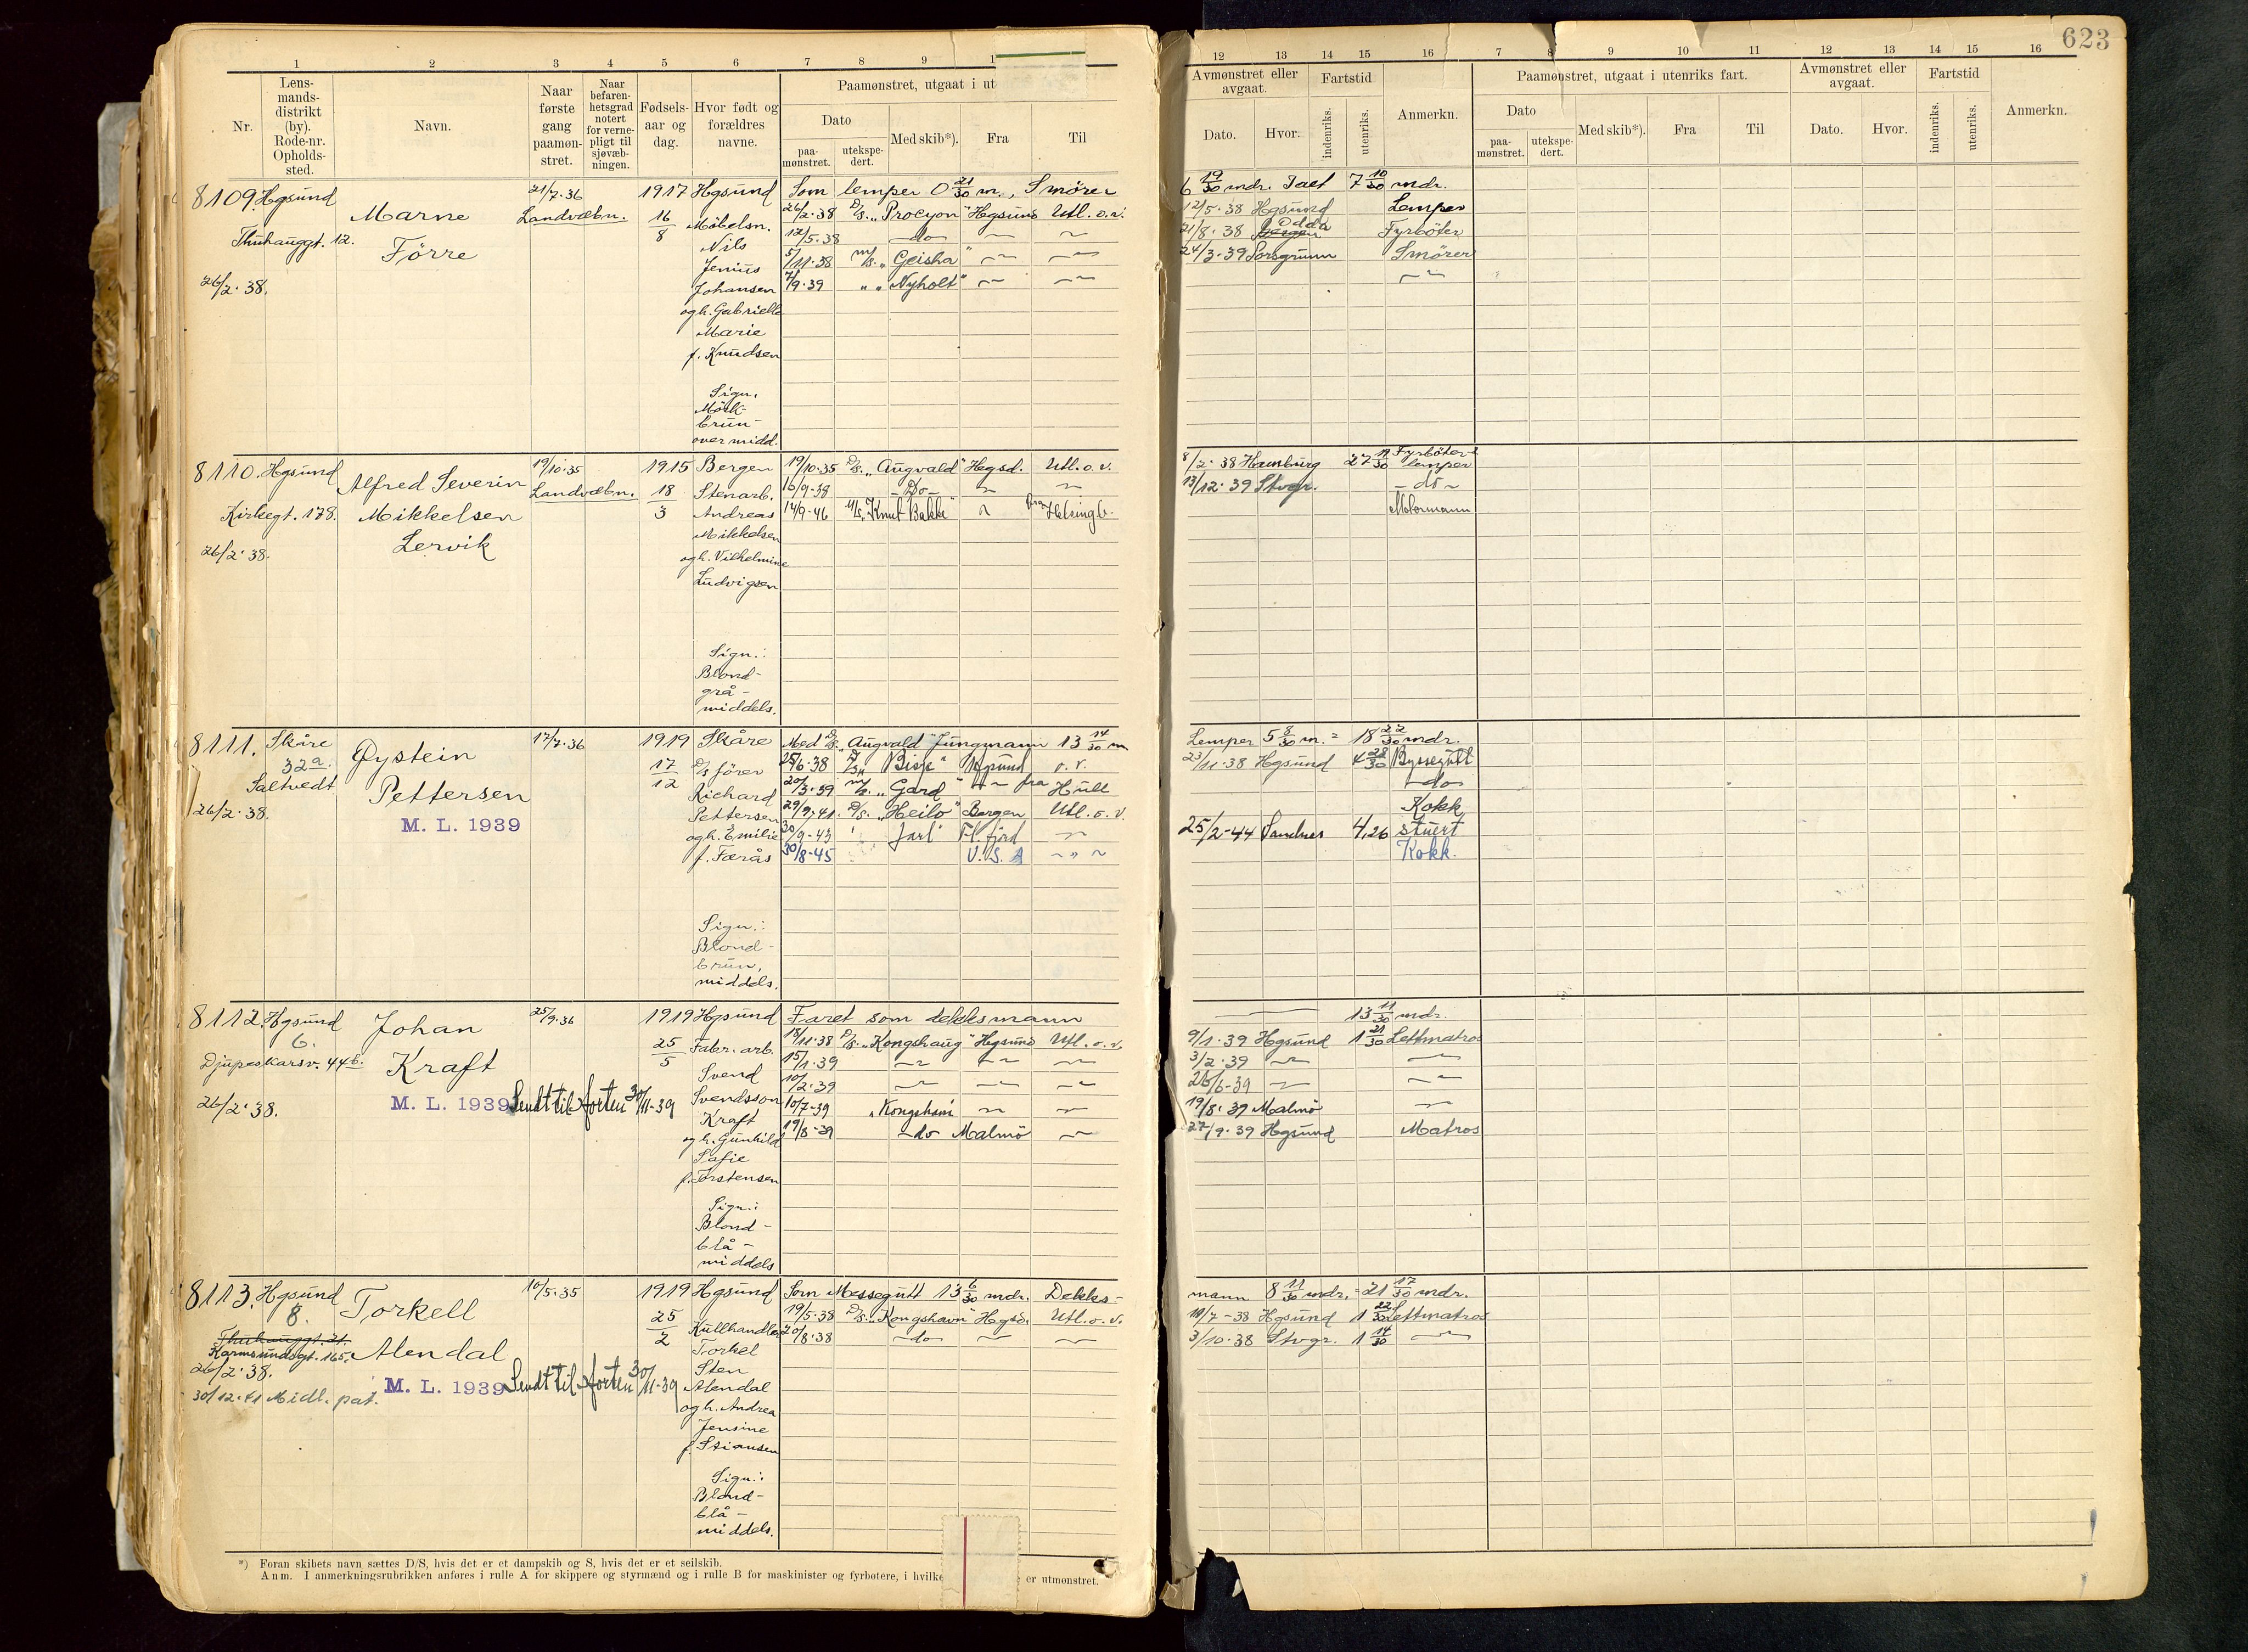 623
1 2 3 4 5 6 7 8 9 1
12 13 14 15 16 7 8 9 10 11 12 13 14 15 16
Nr.
Lens-
mands-
distrikt
(by).
Rode-nr.
Opholds-
sted.
Navn.
Naar
første
gang
paamøn-
stret.
Naar
befaren-
hetsgrad
notert
for verne-
pligt til
sjøvæb-
ningen.
Fødsels-
aar og
dag.
Hvor født og
forældres
navne.
Paamønstret, utgaat i ut
Dato
paa-
mønstret.
utekspe-
dert.
Med skib*).
Fra
Til
Avmønstret eller
avgaat.
Dato.
Hvor.
Fartstid
indenriks.
utenriks.
Anmerkn.
Paamønstret, utgaat i utenriks fart.
Dato
paa-
mønstret.
utekspe-
dert.
Med skib*).
Fra
Til
Avmønstret eller
avgaat.
Dato.
Hvor.
Fartstid
indenriks.
utenriks.
Anmerkn.
8109. Hgsund
Thuhauggt. 12.
26/2.38.
Marne
Förre
21/7.36
Landvæbn.
1917
16
8
Hgsund
Möbelsn.
Nils
Jenius
Johansen
og h. Gabrielle
Marie
f. Knudsen
Sign.
Mörk-
brun-
over midd.
Som lemper 0 21/30 m., Smörer 6 19/30 mdr. Ialt 7 10/30 mdr.
26/2.38 D/S. „Procyon" Hgsund Utl. o.v. 12/5.38 Hgsund Lemper
12/5.38 —do— 〃 〃 21/8.38 Bergen Odda Fyrböter
5/11.38 M/S. „Geisha" 〃 〃 24/3.39 Porsgrunn Smörer
7/9.39 „ „ Nyholt" 〃 〃 〃
8110. Hgsund
Kirkegt. 178.
26/2.38.
Alfred Severin
Mikkelsen
Lervik
19/10.35
Landvæbn.
1915
18
3
Bergen
Stenarb.
Andreas
Mikkelsen
og h. Vilhelmine
Ludvigsen
Sign.:
Blond-
grå-
middels.
19/10.35 D/S. „Augvald" Hegsd. Utl. o. v. 8/2.38 Hamburg 27 19/30 Fyrböter & lemper
16/9-38 —Do— 〃 〃 13/12.39 Stvgr. —do—
14/9-46 M/S „Knut Bakke" 〃 fra Helsingb. Motormann
8111. Skåre
32a.
Saltvedt
26/2.38.
Øystein
Pettersen
M. L. 1939
17/7.36
1919
17
12
Skåre
D/S förer
Richard
Pettersen
og h. Emilie
f. Færås
Sign.:
Blond-
brun,
middels.
Med D/S. „Augvald" Jungmann 13 14/30 m. Lemper 5 8/30 m. = 18 22/30 mdr.
25/6.38 D/S „Bisp" Hgsund o. v. 23/11.38 Hgsund 4 28/30 Byssegutt
20/3.39 M/S. „Gard" 〃 fra Hull —do—
29/9.41 D/S. „Heilo" Bergen Utl. o. v. Kokk
30/9-43 Jarl Fl. fjord 〃 25/2-44 Sandnes 4,26 stuert
30/8-45 U.S.A 〃 Kokk.
8112. Hgsund
6.
Djupaskarsv. 44b.
26/2.38.
Johan
Kraft
M. L. 1939 Sendt til Horten 30/11-39
25/9.36
1919
25
5
Hgsund
Fabr. arb.
Svend
Svendsson
Kraft
og h. Gunhild
Sofie
f. Torstensen
Sign.:
Blond-
blå-
middels
Faret som dekksmann 13 11/30 mdr.
18/11.38 D/S. „Kongshaug" Hgsund Utl. o. v. 9/1.39 Hgsund 1 21/30 Lettmatros
15/1.39 〃 〃 〃 3/2.39 〃 〃
10/2.39 〃 〃 〃 26/6-39 〃 〃
10/7-39 „Kongshavn 〃 〃 19/8.39 Malmö 〃
19/8-39 —do Malmö 〃 27/9.39 Hgsund Matros
8113. Hgsund
8.
Thuhauggt. 21.
Karmsundsgt. 165.
26/2.38.
30/12.41 Midl. pat.
Torkell
Alendal
M. L. 1939 Sendt til Horten 30/11-39
10/5.35
1919
25
2
Hgsund
Kullhandler
Torkel
Sten
Alendal
og h. Andrea
Jensine
f. Stiansen
Sign.:
Blond-
blå-
middels.
Som Messegutt 13 6/30 mdr. Dekks- mann 8 11/30 mdr. = 21 17/30 mdr.
19/5.38 D/S. „Kongshavn" Hgsd. Utl. o. v. 10/7-38 Hgsund 1 22/30 Lettmatros
20/8.38 —do— 〃 〃 3/10-38 Stvgr. 1 14/30 〃
*) Foran skibets navn sættes D/S, hvis det er et dampskib og S, hvis det er et seilskib.
Anm. I anmerkningsrubrikken anføres i rulle A for skippere og styrmænd og i rulle B for maskinister og fyrbøtere, i hvilke er utmønstret.